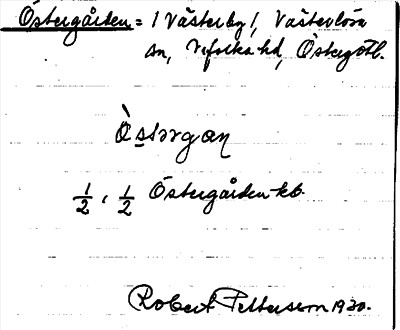 Östergården = 1 Västerby 1, Västerlösa
sn, Vifolka hd, Östergötl.
Òstərgan
1/2, 1/2 Östergården kb.
Robert Pettersson 1930.